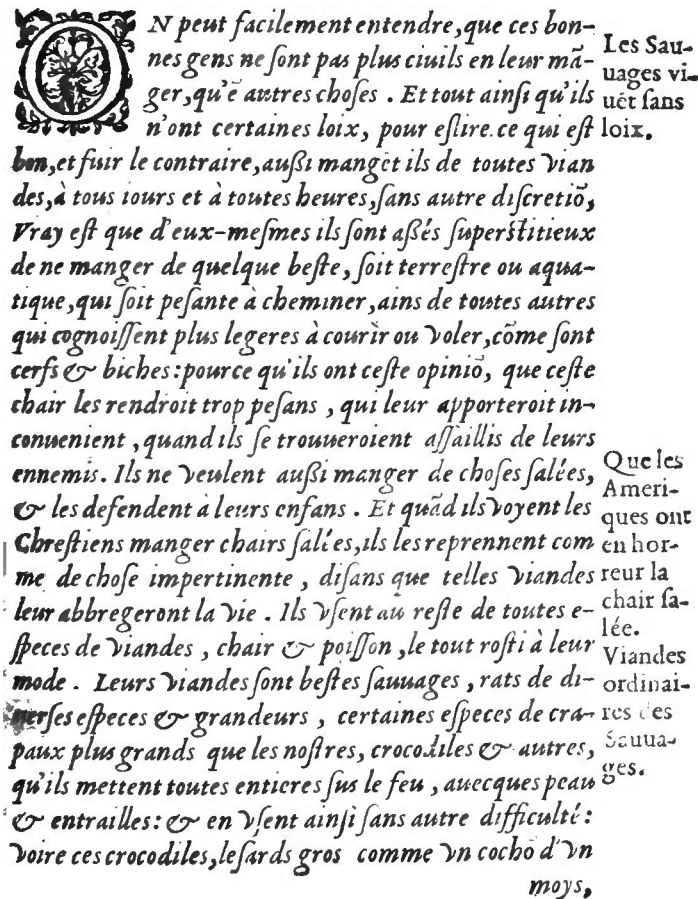 ON peut facilement entendre, que ces bon-
nes gens ne sont pas plus ciuils en leur mã-
ger, qu'ẽ autres choses. Et tout ainsi qu'ils
n'ont certaines loix, pour eslire ce qui est
bon, et fuir le contraire, außi mangẽt ils de toutes vian
des, à tous iours et à toutes heures, sans autre discretiõ,
Vray est que d'eux-mesmes ils sont aßés superstitieux
de ne manger de quelque beste, soit terrestre ou aqua-
tique, qui soit pesante à cheminer, ains de toutes autres
qui cognoissent plus legeres à courir ou voler, cõme sont
cerfs & biches: pource qu'ils ont ceste opiniõ, que ceste
chair les rendroit trop pesans, qui leur apporteroit in-
conuenient, quand ils se trouueroient assaillis de leurs
ennemis. Ils ne veulent außi manger de choses salées,
& les defendent à leurs enfans. Et quãd ils voyent les
Chrestiens manger chairs salées, ils les reprennent com
me de chose impertinente, disans que telles viandes
leur abbregeront la vie. Ils vsent au reste de toutes e-
speces de viandes, chair & poisson, le tout rosti à leur
mode. Leurs viandes sont bestes sauuages, rats de di-
uerses especes & grandeurs, certaines especes de cra-
paux plus grands que les nostres, crocodiles & autres,
qu'ils mettent toutes entieres sus le feu, auecques peau
& entrailles: & en vsent ainsi sans autre difficulté:
voire ces crocodiles, lesards gros comme vn cochõ d'vn
moys,
Les Sau-
uages vi-
uẽt sans
loix.
Que les
Ameri-
ques ont
en hor-
reur la
chair sa-
lée.
Viandes
ordinai-
res des
Sauua-
ges.